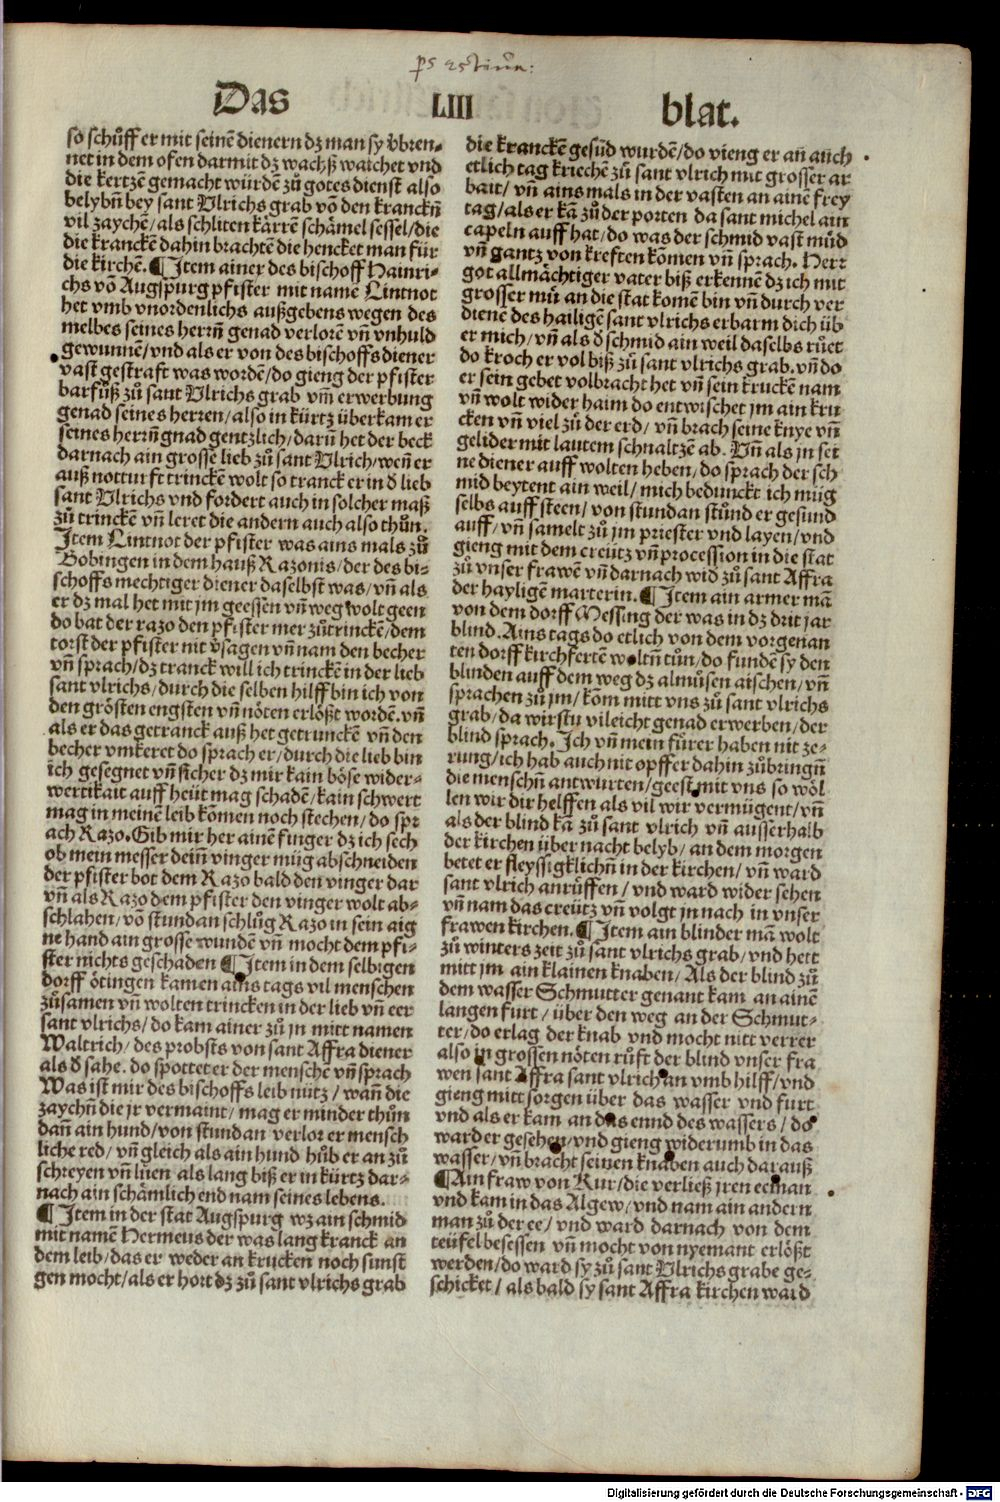 Das LIII blat.
so schůff er mit seinē dienern dz man sy v̈bren-
net in dem ofen darmit dz wachß waichet vnd
die kertzē gemacht würdē zů gotes dienst also
belybn̄ bey sant Vlrichs grab vō den kranckn̄
vil zaychē/als schliten kårrē schåmel sessel/die
die kranckē dahin brachtē die hencket man für
die kirchē. ¶ Item ainer des bischoff Hainri-
chs vō Augspurg pfister mit namē Lintnot
het vmb vnordenlichs außgebens wegen des
melbes seines herrn̄ genad verlorē vn̄ vnhuld
gewunnē/vnd als er von des bischoffs diener
vast gestraft was wordē/do gieng der pfister
barfůß zů sant Vlrichs grab vm̄ erwerbung
genad seines herren/also in kürtz überkam er
seines herrn̄ gnad gentzlich/darū het der beck
darnach ain grosse lieb zů sant Vlrich/wen̄ er
auß notturft trinckē wolt so tranck er in d lieb
sant Vlrichs vnd fordert auch in solcher maß
zů trinckē vn̄ leret die andern auch also thůn.
Item Lintnot der pfister was ains mals zů
Bobingen in dem hauß Razonis/der des bi-
schoffs mechtiger diener daselbst was/vn̄ als
er dz mal het mit jm geessen vn̄ weg wolt geen
do bat der razo den pfister mer zůtrinckē/dem
torst der pfister nit v̈sagen vn̄ nam den becher
vn̄ sprach/dz tranck will ich trinckē in der lieb
sant vlrichs/durch die selben hilff bin ich von
den grösten engsten vn̄ nöten erlößt wordē.vn̄
als er das getranck auß het getrunckē vn̄ den
becher vmkeret do sprach er/durch die lieb bin
ich gesegnet vn̄ sicher dz mir kain böse wider-
wertikait auff heüt mag schadē/kain schwert
mag in meinē leib kōmen noch stechen/do spr
ach Razo. Gib mir her ainē finger dz ich sech
ob mein messer dein̄ vinger müg abschneiden
der pfister bot dem Razo bald den vinger dar
vn̄ als Razo dem pfister den vinger wolt ab-
schlahen/vō stundan schlůg Razo in sein aig
ne hand ain grosse wundē vn̄ mocht dem pfi-
ster nichts geschaden ¶ Item in dem selbigen
dorff ötingen kamen ains tags vil menschen
zůsamen vn̄ wolten trincken in der lieb vn̄ eer
sant vlrichs/do kam ainer zů jn mitt namen
Waltrich/des probsts von sant Affra diener
als d sahe. do spottet er der menschē vn̄ sprach
Was ist mir des bischoffs leib nütz/wan̄ die
zaychn̄ die jr vermaint/mag er minder thůn
dan̄ ain hund/von stundan verlor er mensch
liche red/vn̄ gleich als ain hund hůb er an zů
schreyen vn̄ lüen als lang biß er in kürtz dar-
nach ain schåmlich end nam seines lebens.
¶ Item in der stat Augspurg wz ain schmid
mit namē Hermeus der was lang kranck an
dem leib/das er weder an krucken noch sunst
gen mocht/als er hort dz zů sant vlrichs grab
die kranckē gesūd wurdē/do vieng er an auch
etlich tag kriechē zů sant vlrich mit grosser ar
bait/vn̄ ains mals in der vasten an ainē frey
tag/als er kā zů der porten da sant michel ain
capeln auff hat/do was der schmid vast můd
vn̄ gantz von kreften kōmen vn̄ sprach. Herr
got allmåchtiger vater biß erkennē dz ich mit
grosser mü an die stat komē bin vn̄ durch ver
dienē des hailigē sant vlrichs erbarm dich üb
er mich/vn̄ als d schmid ain weil daselbs růet
do kroch er vol biß zů sant vlrichs grab.vn̄ do
er sein gebet volbracht het vn̄ sein kruckē nam
vn̄ wolt wider haim do entwischet jm ain kru
cken vn̄ viel zů der erd/vn̄ brach seine knye vn̄
gelider mit lautem schnaltzē ab. Vn̄ als jn sei
ne diener auff wolten heben/do sprach der sch
mid beytent ain weil/mich bedunckt ich müg
selbs auff steen/von stundan stůnd er gesund
auff/vn̄ samelt zů jm priester vnd layen/vnd
gieng mit dem creütz vn̄ procession in die stat
zů vnser frawē vn̄ darnach wid zů sant Affra
der hayligē marterin. ¶ Item ain armer mā
von dem dorff Messing der was in dz drit jar
blind. Ains tags do etlich von dem vorgenan
ten dorff kirchfertē woltn̄ tůn/do fundē sy den
blinden auff dem weg dz almůsen aischen/vn̄
sprachen zů jm/kōm mitt vns zů sant vlrichs
grab/da wirstu vileicht genad erwerben/der
blind sprach. Ich vn̄ mein fůrer haben nit ze-
rung/ich hab auch nit opffer dahin zůbringn̄
die menschn̄ antwurten/geest mit vns so wöl
len wir dir helffen als vil wir vermügent/vn̄
als der blind kā zů sant vlrich vn̄ ausserhalb
der kirchen über nacht belyb/an dem morgen
betet er fleyssigklichn̄ in der kirchen/vn̄ ward
sant vlrich anrůffen/vnd ward wider sehen
vn̄ nam das creütz vn̄ volgt jn nach in vnser
frawen kirchen. ¶ Item ain blinder mā wolt
zů winters zeit zů sant vlrichs grab/vnd hett
mitt jm ain klainen knaben/Als der blind zů
dem wasser Schmutter genant kam an ainē
langen furt/über den weg an der Schmut-
ter/do erlag der knab vnd mocht nitt verrer
also in grossen nöten růft der blind vnser fra
wen sant Affra sant vlrich an vmb hilff/vnd
gieng mitt sorgen über das wasser vnd furt
vnd als er kam an das ennd des wassers/do
ward er gesehen/vnd gieng widerumb in das
wasser/vn̄ bracht seinen knaben auch darauß
¶ Ain fraw von Kur/die verließ jren eeman
vnd kam in das Algew/vnd nam ain andern
man zů der ee/vnd ward darnach von dem
teüfel besessen vn̄ mocht von nyemant erlößt
werden/do ward sy zů sant Vlrichs grabe ge-
schicket/als bald sy sant Affra kirchen ward
Digitalisierung gefördert durch die Deutsche Forschungsgemeinschaft - DFG